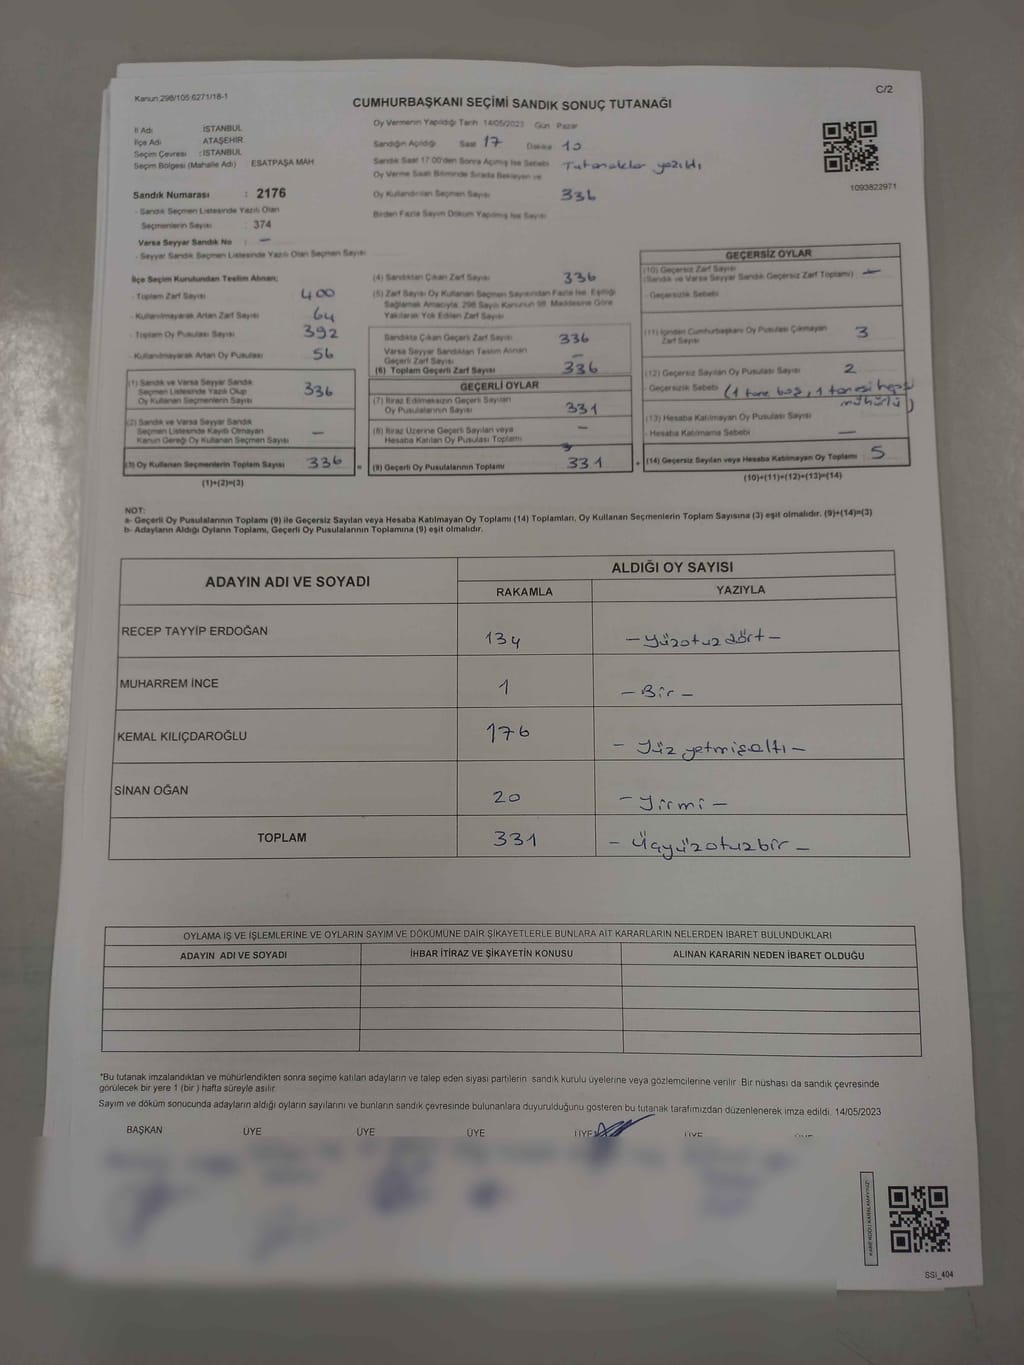 Kanun:298/105:6271/18-1
C/2
CUMHURBAŞKANI SEÇİMİ SANDIK SONUÇ TUTANAĞI
İl Adı İSTANBUL
İlçe Adı ATAŞEHİR
Seçim Çevresi : İSTANBUL
Seçim Bölgesi (Mahalle Adı) ESATPAŞA MAH
Sandık Numarası : 2176
- Sandık Seçmen Listesinde Yazılı Olan
Seçmenlerin Sayısı : 374
Varsa Seyyar Sandık No : —
- Seyyar Sandık Seçmen Listesinde Yazılı Olan Seçmen Sayısı
Oy Vermenin Yapıldığı Tarih 14/05/2023 Gün Pazar
Sandığın Açıldığı Saat 17 Dakika 10
Sandık Saat 17:00'den Sonra Açılmış İse Sebebi Tutanaklar yazıldı
Oy Verme Saati Bitiminde Sırada Bekleyen ve
Oy Kullandırılan Seçmen Sayısı 336
Birden Fazla Sayım Döküm Yapılmış İse Sayısı
1093822971
İlçe Seçim Kurulundan Teslim Alınan;
- Toplam Zarf Sayısı 400
- Kullanılmayarak Artan Zarf Sayısı 64
- Toplam Oy Pusulası Sayısı 392
- Kullanılmayarak Artan Oy Pusulası 56
(1) Sandık ve Varsa Seyyar Sandık
Seçmen Listesinde Yazılı Olup
Oy Kullanan Seçmenlerin Sayısı 336
(2) Sandık ve Varsa Seyyar Sandık
Seçmen Listesinde Kayıtlı Olmayan
Kanun Gereği Oy Kullanan Seçmen Sayısı —
(3) Oy Kullanan Seçmenlerin Toplam Sayısı 336
(1)+(2)=(3)
(4) Sandıktan Çıkan Zarf Sayısı 336
(5) Zarf Sayısı Oy Kullanan Seçmen Sayısından Fazla İse, Eşitliği
Sağlamak Amacıyla; 298 Sayılı Kanunun 98. Maddesine Göre
Yakılarak Yok Edilen Zarf Sayısı
Sandıkta Çıkan Geçerli Zarf Sayısı 336
Varsa Seyyar Sandıktan Teslim Alınan
Geçerli Zarf Sayısı —
(6) Toplam Geçerli Zarf Sayısı 336
GEÇERLİ OYLAR
(7) İtiraz Edilmeksizin Geçerli Sayılan
Oy Pusulalarının Sayısı 331
(8) İtiraz Üzerine Geçerli Sayılan veya
Hesaba Katılan Oy Pusulası Toplamı —
(9) Geçerli Oy Pusulalarının Toplamı 331
GEÇERSİZ OYLAR
(10) Geçersiz Zarf Sayısı
(Sandık ve Varsa Seyyar Sandık Geçersiz Zarf Toplamı) —
- Geçersizlik Sebebi
(11) İçinden Cumhurbaşkanı Oy Pusulası Çıkmayan
Zarf Sayısı 3
(12) Geçersiz Sayılan Oy Pusulası Sayısı 2
- Geçersizlik Sebebi (1 tane boş, 1 tanesi hepsi
mühürlü)
(13) Hesaba Katılmayan Oy Pusulası Sayısı
- Hesaba Katılmama Sebebi —
(14) Geçersiz Sayılan veya Hesaba Katılmayan Oy Toplamı 5
(10)+(11)+(12)+(13)=(14)
NOT:
a- Geçerli Oy Pusulalarının Toplamı (9) ile Geçersiz Sayılan veya Hesaba Katılmayan Oy Toplamı (14) Toplamları, Oy Kullanan Seçmenlerin Toplam Sayısına (3) eşit olmalıdır. (9)+(14)=(3)
b- Adayların Aldığı Oyların Toplamı, Geçerli Oy Pusulalarının Toplamına (9) eşit olmalıdır.
ADAYIN ADI VE SOYADI
ALDIĞI OY SAYISI
RAKAMLA YAZIYLA
RECEP TAYYİP ERDOĞAN 134 — Yüzotuzdört —
MUHARREM İNCE 1 — Bir —
KEMAL KILIÇDAROĞLU 176 — Yüzyetmişaltı —
SİNAN OĞAN 20 — Yirmi —
TOPLAM 331 — Üçyüzotuzbir —
OYLAMA İŞ VE İŞLEMLERİNE VE OYLARIN SAYIM VE DÖKÜMÜNE DAİR ŞİKAYETLERLE BUNLARA AİT KARARLARIN NELERDEN İBARET BULUNDUKLARI
ADAYIN ADI VE SOYADI İHBAR İTİRAZ VE ŞİKAYETİN KONUSU ALINAN KARARIN NEDEN İBARET OLDUĞU
*Bu tutanak imzalandıktan ve mühürlendikten sonra seçime katılan adayların ve talep eden siyasi partilerin sandık kurulu üyelerine veya gözlemcilerine verilir. Bir nüshası da sandık çevresinde
görülecek bir yere 1 (bir) hafta süreyle asılır.
Sayım ve döküm sonucunda adayların aldığı oyların sayılarını ve bunların sandık çevresinde bulunanlara duyurulduğunu gösteren bu tutanak tarafımızdan düzenlenerek imza edildi. 14/05/2023
BAŞKAN ÜYE ÜYE ÜYE ÜYE ÜYE
KARE KODU KARALAMAYINIZ!
SSI_404